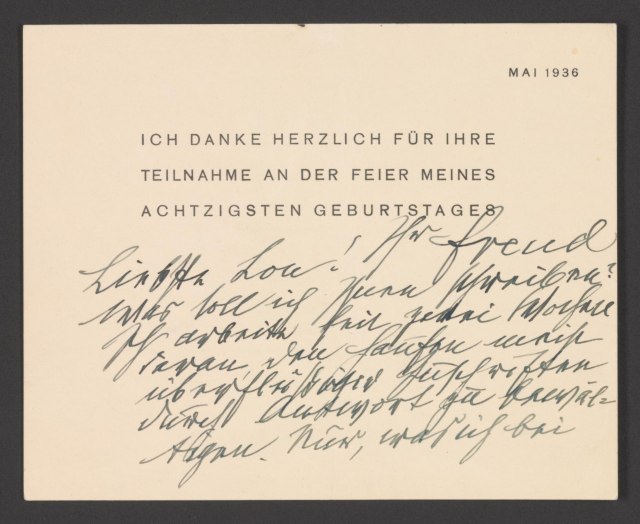 MAI 1936
ICH DANKE HERZLICH FÜR IHRE
TEILNAHME AN DER FEIER MEINES
ACHTZIGSTEN GEBURTSTAGES
Ihr Freud
Liebste Lou!
Was soll ich Ihnen schreiben?
Ich arbeite seit zwei Wochen
daran, den Haufen meist
überflüssiger Zuschriften
durch Antwort zu bewäl=
tigen. Nur, was ich bei